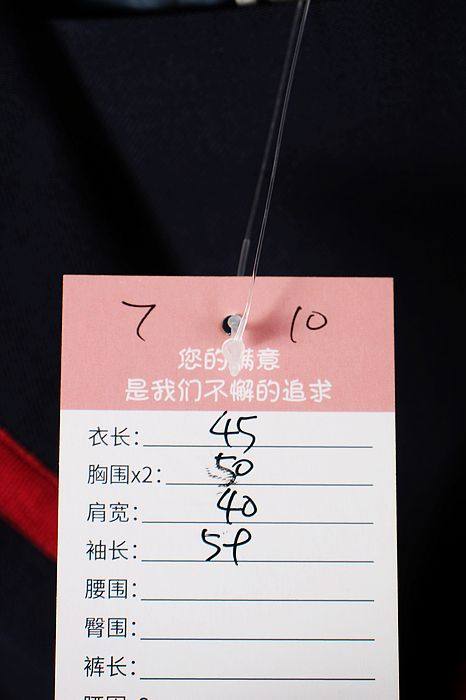 7 10
您的满意
是我们不懈的追求
衣长: 45
胸围x2: 50
肩宽: 40
袖长: 59
腰围:
臀围:
裤长: